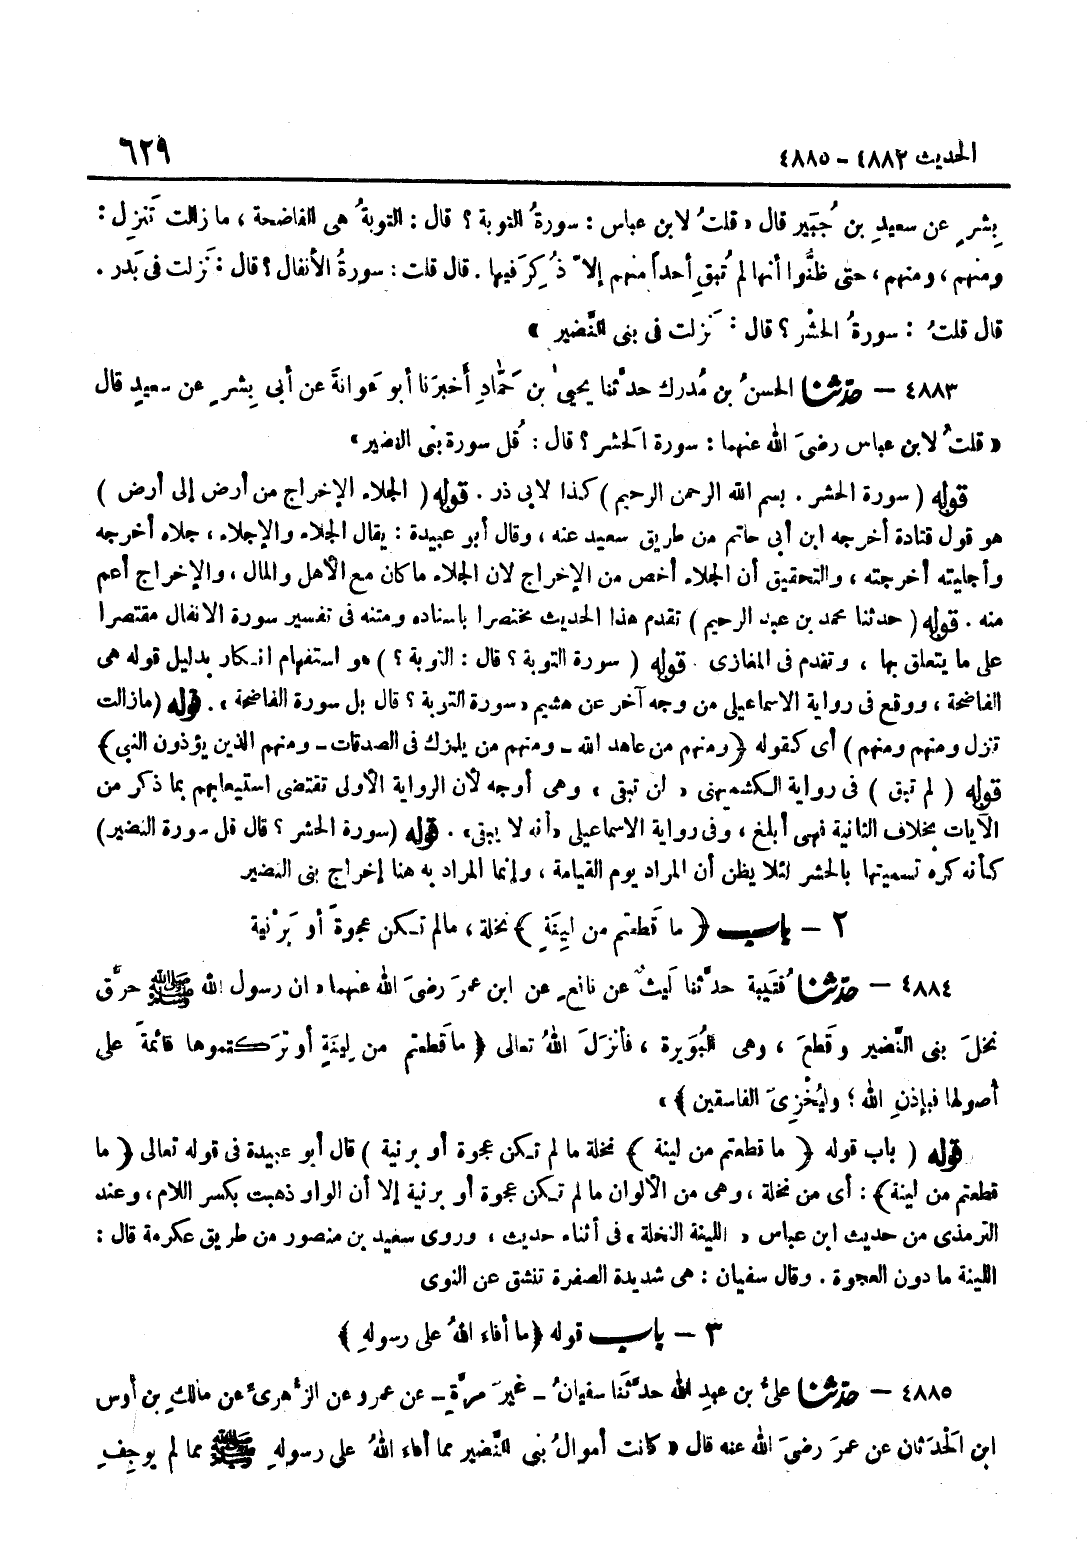 الحديث ٤٨٨٢ - ٤٨٨٥
٦٢٩
بِشرٍ عن سعيدِ بن جُبَير قال « قلتُ لابن عباس : سورةُ التوبة ؟ قال : التوبةُ هى الفاضحة ، ما زالت تَنزِل :
ومنهم ، ومنهم ، حتى ظنُّوا أنها لم تُبقِ أحداً منهم إلاّ ذُكِرَ فيها . قال قلت : سورةُ الأنفال ؟ قال : نَزلت فى بَدر .
قال قلتُ : سورةُ الحشْر ؟ قال : نَزلت فى بنى النَّضير »
٤٨٨٣ – حدّثنا الحسنُ بن مُدرك حدَّثنا يحيىٰ بن حَمّادٍ أخبرَنا أبو عَوانةَ عن أبى بِشرٍ عن سعيدٍ قال
« قلتُ لابن عباس رضىَ الله عنهما : سورة الحَشر ؟ قال : قُل سورة بنى النضير »
قوله ( سورة الحشر . بسم الله الرحمن الرحيم ) كذا لابى ذر . قوله ( الجلاء الإخراج من أرض إلى أرض )
هو قول قتادة أخرجه ابن أبى حاتم من طريق سعيد عنه ، وقال أبو عبيدة : يقال الجلاء والإجلاء ، جلاه أخرجه
وأجليته أخرجته ، والتحقيق أن الجلاء أخص من الإخراج لان الجلاء ما كان مع الأهل والمال ، والإخراج أعم
منه . قوله ( حدثنا محمد بن عبد الرحيم ) تقدم هذا الحديث مختصرا باسناده ومتنه فى تفسير سورة الانفال مقتصرا
على ما يتعلق بها ، وتقدم فى المغازى . قوله ( سورة التوبة ؟ قال : التوبة ؟ ) هو استفهام انكار بدليل قوله هى
الفاضحة ، ووقع فى رواية الاسماعيلى من وجه آخر عن هشيم « سورة التوبة ؟ قال بل سورة الفاضحة » . قوله (ما زالت
تنزل ومنهم ومنهم ) أى كقوله ﴿ ومنهم من عاهد الله – ومنهم من يلمزك فى الصدقات – ومنهم الذين يؤذون النبي﴾
قوله ( لم تبق ) فى رواية الكشميهنى « لن تبقى » وهى أوجه لأن الرواية الأولى تقتضى استيعابهم بما ذكر من
الآيات بخلاف الثانية فهى أبلغ ، وفى رواية الاسماعيلى «أنه لا يبقى» . قوله (سورة الحشر ؟ قال قل سورة النضير)
كأنه كره تسميتها بالحشر لئلا يظن أن المراد يوم القيامة ، وإنما المراد به هنا إخراج بنى النضير
٢ – باب ﴿ ما قَطعتم من لِينَةٍ ﴾ نخلة ، مالم تكن عجوةً أو بَرْنية
٤٨٨٤ – حدّثنا قُتَيبة حدَّثنا لَيثٌ عن نافعٍ عن ابن عمرَ رضىَ الله عنهما « ان رسول الله ﷺ حرَّق
نخلَ بنى النَّضير وقَطعَ ، وهى البُوَيرة ، فأنزَلَ اللهُ تعالى ﴿ ما قَطعتم من لِينَةٍ أو تَركتموها قائمةً على
أصولها فبإذنِ الله ؛ وليُخْزِىَ الفاسقين ﴾ »
قوله ( باب قوله ﴿ ما قطعتم من لينة ﴾ نخلة ما لم تكن عجوة أو برنية ) قال أبو عبيدة فى قوله تعالى ﴿ ما
قطعتم من لينة﴾ : أى من نخلة ، وهى من الألوان ما لم تكن عجوة أو برنية إلا أن الواو ذهبت بكسر اللام ، وعند
الترمذى من حديث ابن عباس « اللينة النخلة » فى أثناء حديث ، وروى سعيد بن منصور من طريق عكرمة قال :
اللينة ما دون العجوة . وقال سفيان : هى شديدة الصفرة تنشق عن النوى
٣ – باب قوله ﴿ما أفاء اللهُ على رسولهِ ﴾
٤٨٨٥ – حدّثنا علىُّ بن عبدِ الله حدَّثَنا سفيانُ – غيرَ مرَّةٍ – عن عمرو عن الزُّهرىِّ عن مالكِ بن أوس
ابن الحَدَثان عن عمرَ رضىَ الله عنه قال « كانت أموالُ بنى النَّضير مما أفاء اللهُ على رسولهِ ﷺ مما لم يوجِفِ